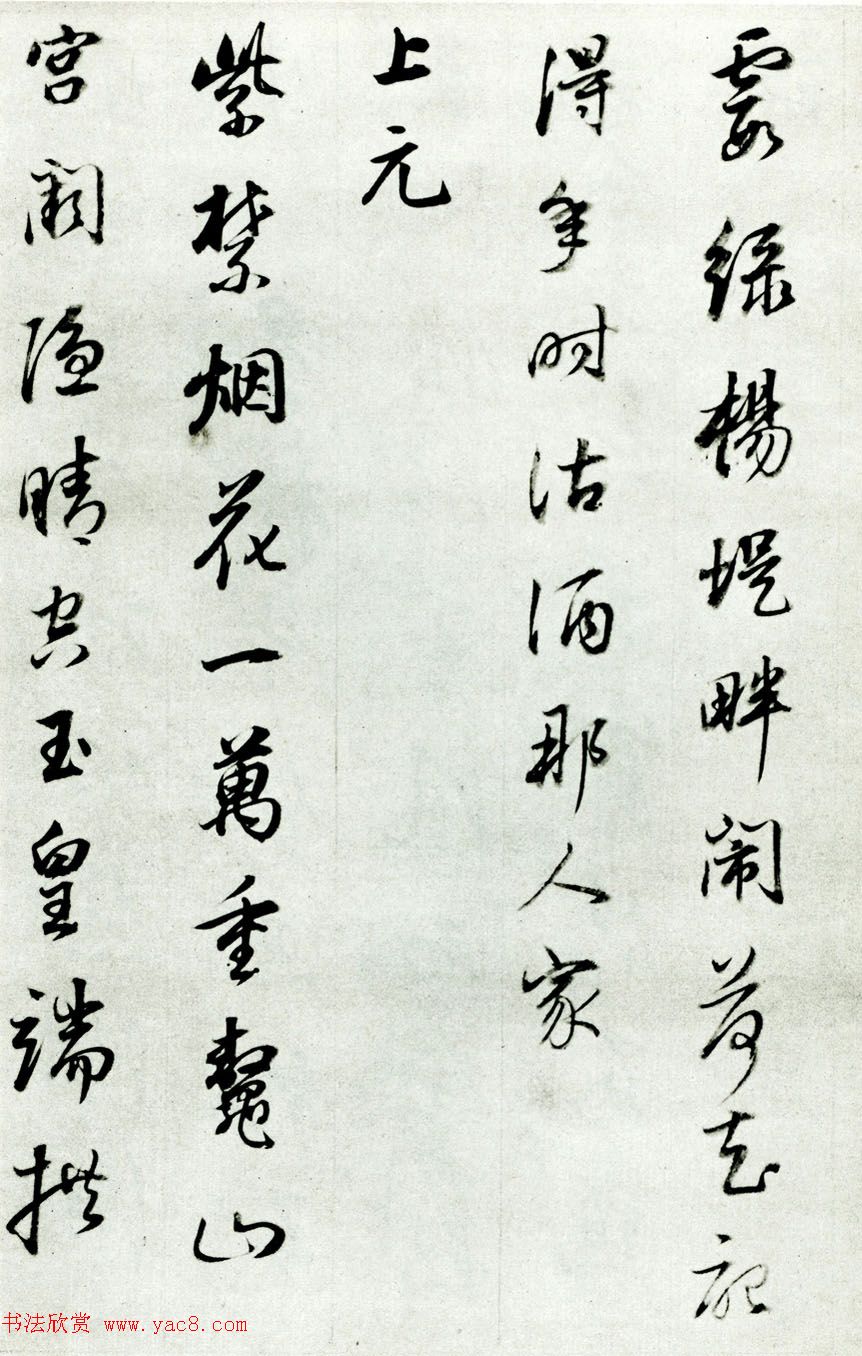 霞绿楊堤畔闹荷花記
得年時沽酒那人家
上元
紫禁烟花一萬重鰲山
宫阙隐晴空玉皇端拱
书法欣赏 www.yac8.com